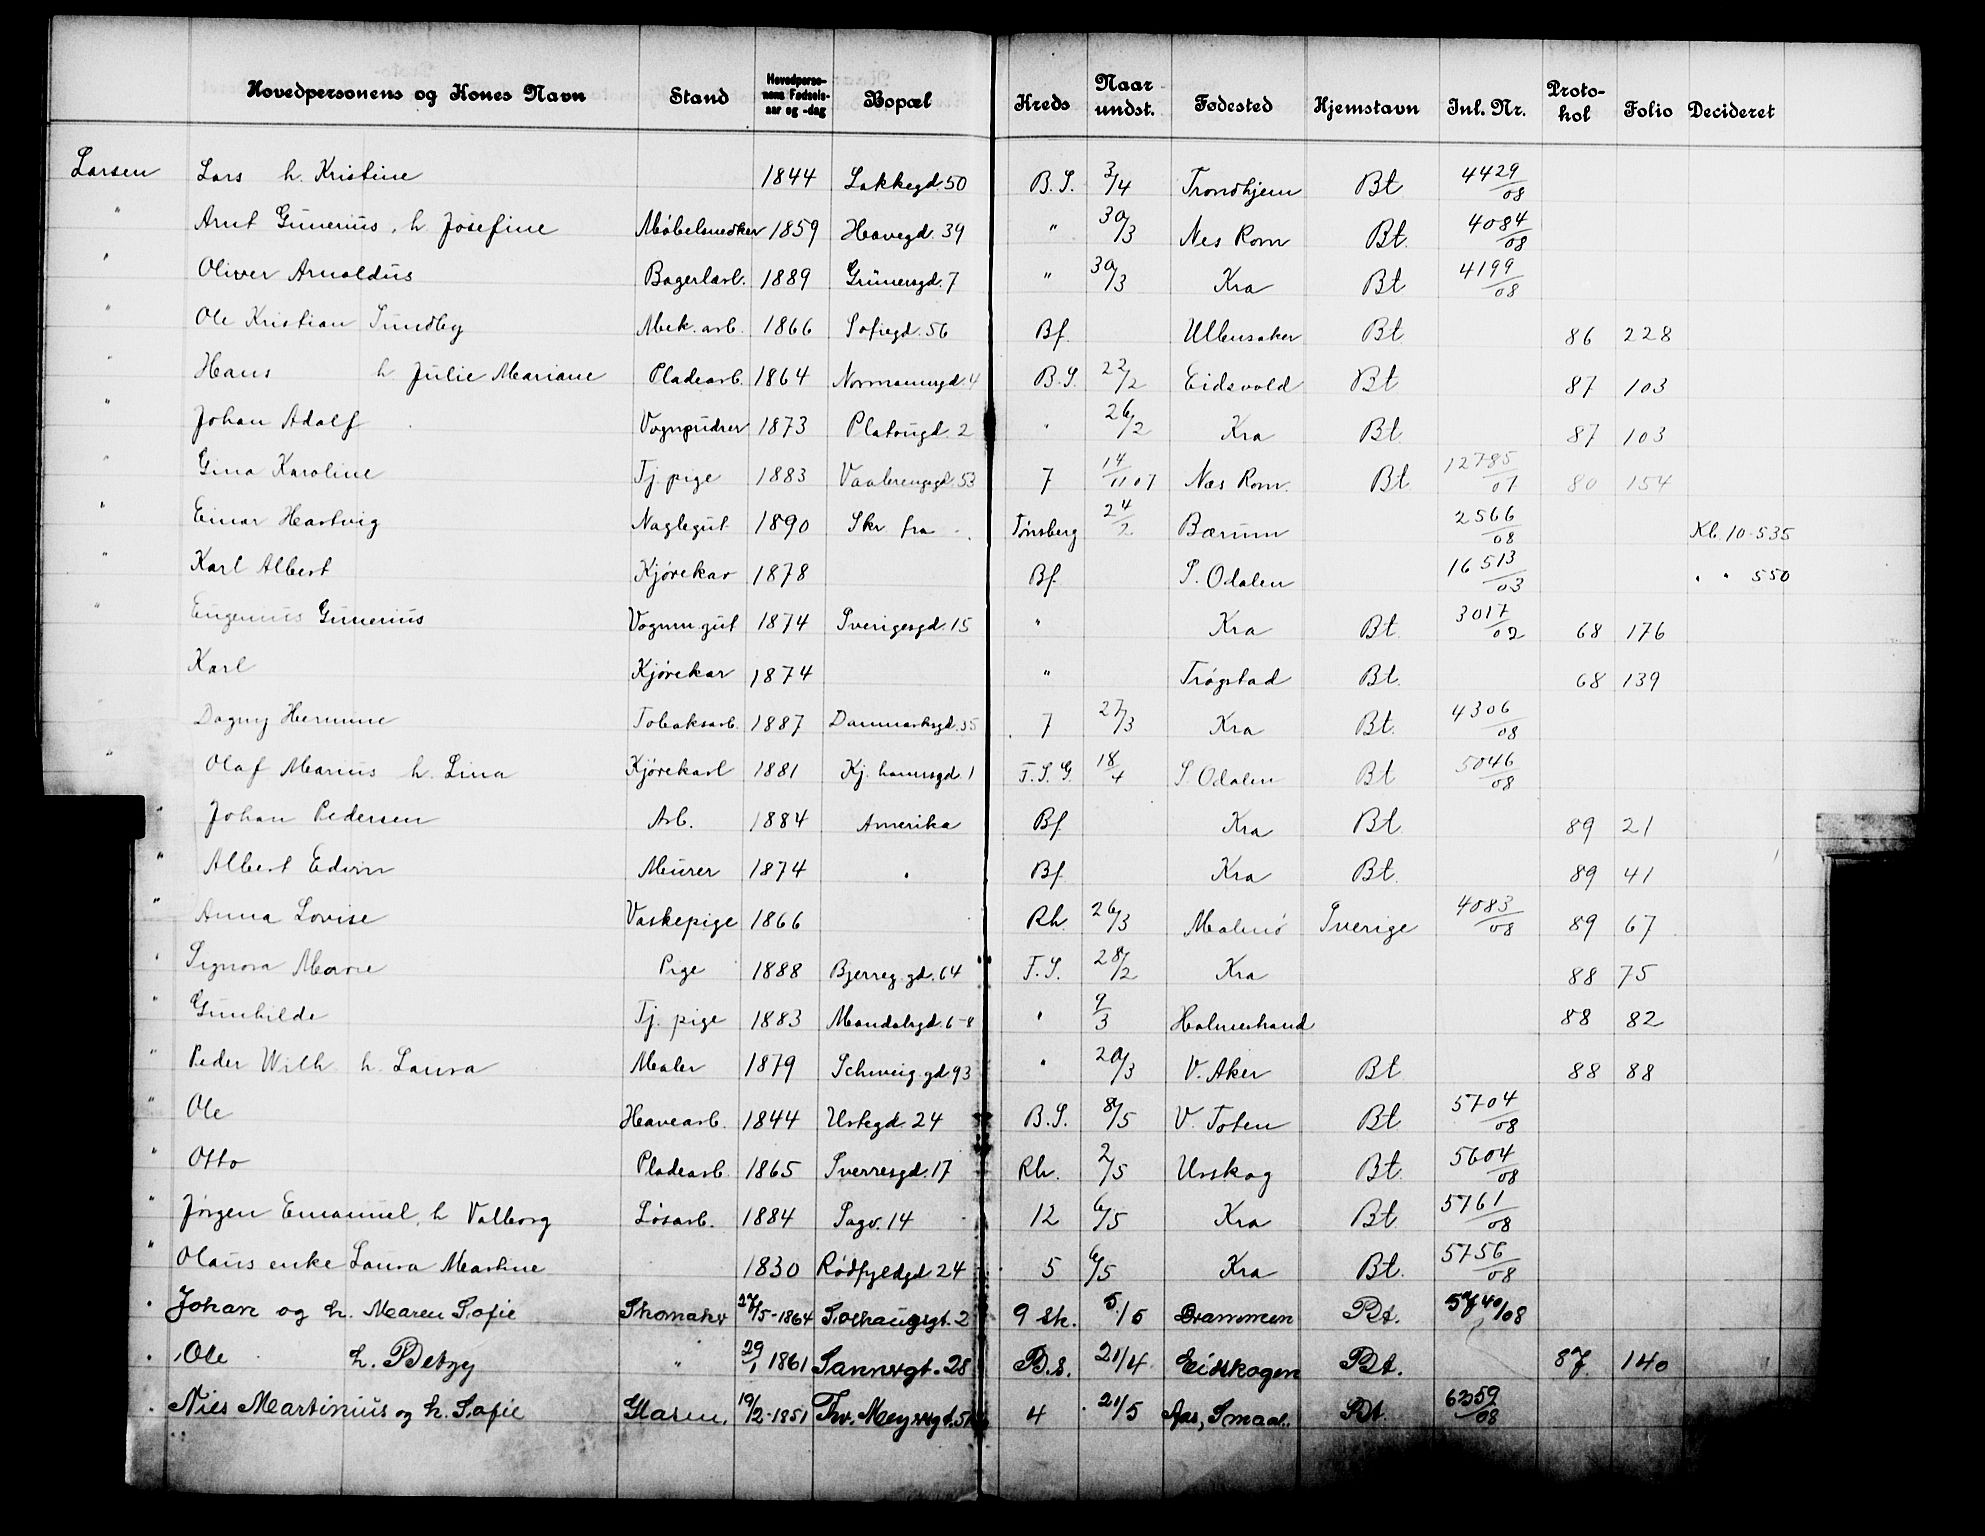 Hovedpersonens og Kones Navn Stand Hovedperso-nens Fødsels-aar og -dag Bopæl Kreds Naar undst. Fødested Hjemstavn Inl. Nr. Proto-kol Folio Decideret
Larsen Lars h. Kristine 1844 Lakkegd 50 B.S. 3/4 Trondhjem Bt 4429/08
" Arnt Gunerius, h Josefine Møbelsnedker 1859 Havegd. 39 " 30/3 Nes Rom Bt. 4084/08
" Oliver Arnoldus Bagerlærl. 1889 Grünersgd. 7 " 30/3 Kra Bt 4199/08
" Ole Kristian Sundby Mek. arb. 1866 Sofiegd. 56 Bf. Ullensaker Bt. 86 228
" Hans h. Julie Mariane Pladearb. 1864 Normannsgd. 4 B.S. 22/2 Eidsvold Bt 87 103
" Johan Adolf Vognpudser 1873 Platougd. 2 " 26/2 Kra Bt. 87 103
" Gina Karoline Tj. pige 1883 Vaalerengsgd. 53 7 14/11 07 Næs Rom. Bt 12785/07 80 154
" Einar Hartvig Naglegut 1890 Skr fra Tønsberg 24/2 Bærum 2566/08 Kl. 10-535
" Karl Albert Kjørekar 1878 Bf. S. Odalen 16513/03 " " 550
" Eugenius Gunerius Vognm. gut 1874 Sverigesgd. 15 " Kra Bt. 3017/02 68 176
Karl Kjørekar 1874 " Trøgstad Bt. 68 139
Dagny Hermine Tobaksarb. 1887 Danmarksgd. 35 7 27/3 Kra Bt. 4306/08
" Olaf Marius h. Lina Kjørekarl 1881 Kj. havnsgd. 1 F.S.G. 18/4 S. Odalen Bt 5046/08
" Johan Pedersen Arb. 1884 Amerika Bf. Kra Bt. 89 21
" Albert Edvin Murer 1874 " Bf. Kra Bt. 89 41
" Anna Lovise Vaskepige 1866 Rh. 26/3 Malmö Sverige 4083/08 89 67
" Signora Marie Pige 1888 Bjerreg. gd. 64 F.S. 28/2 Kra 88 75
" Gunhilde Tj. pige 1883 Mandalsgd. 6-8 " 9/3 Holmestrand 88 82
" Peder Wilh. h. Laura Maler 1879 Schweig. gd 93 " 20/3 V. Aker Bt 88 88
" Ole Havearb. 1844 Urtegd. 24 B.S. 8/5 V. Toten Bt 5704/08
" Otto Pladearb. 1865 Sverresgd. 17 Rh. 2/5 Urskog Bt. 5604/08
" Jørgen Emanuel, h Valborg Løsarb. 1884 Sagv. 14 12 6/5 Kra Bt. 5761/08
" Olaus enke Laura Martine 1830 Rødfyldgd 24 5 6/5 Kra Bt. 5756/08
" Johan og h. Maren Sofie Skomaker 27/5-1864 Solhaugsgt. 2 9 Sk. 5/5 Drammen Bt. 5740/08
" Ole h. Betzy " 29/1 1861 Sannergt. 28 B.s. 21/4 Eidskogen Bt. 87 140
" Nils Martinius og h. Sofie Glasm. 19/2-1851 Thv. Meyersgt. 51 4 21/5 Aas, Smaal. Bt. 6359/08